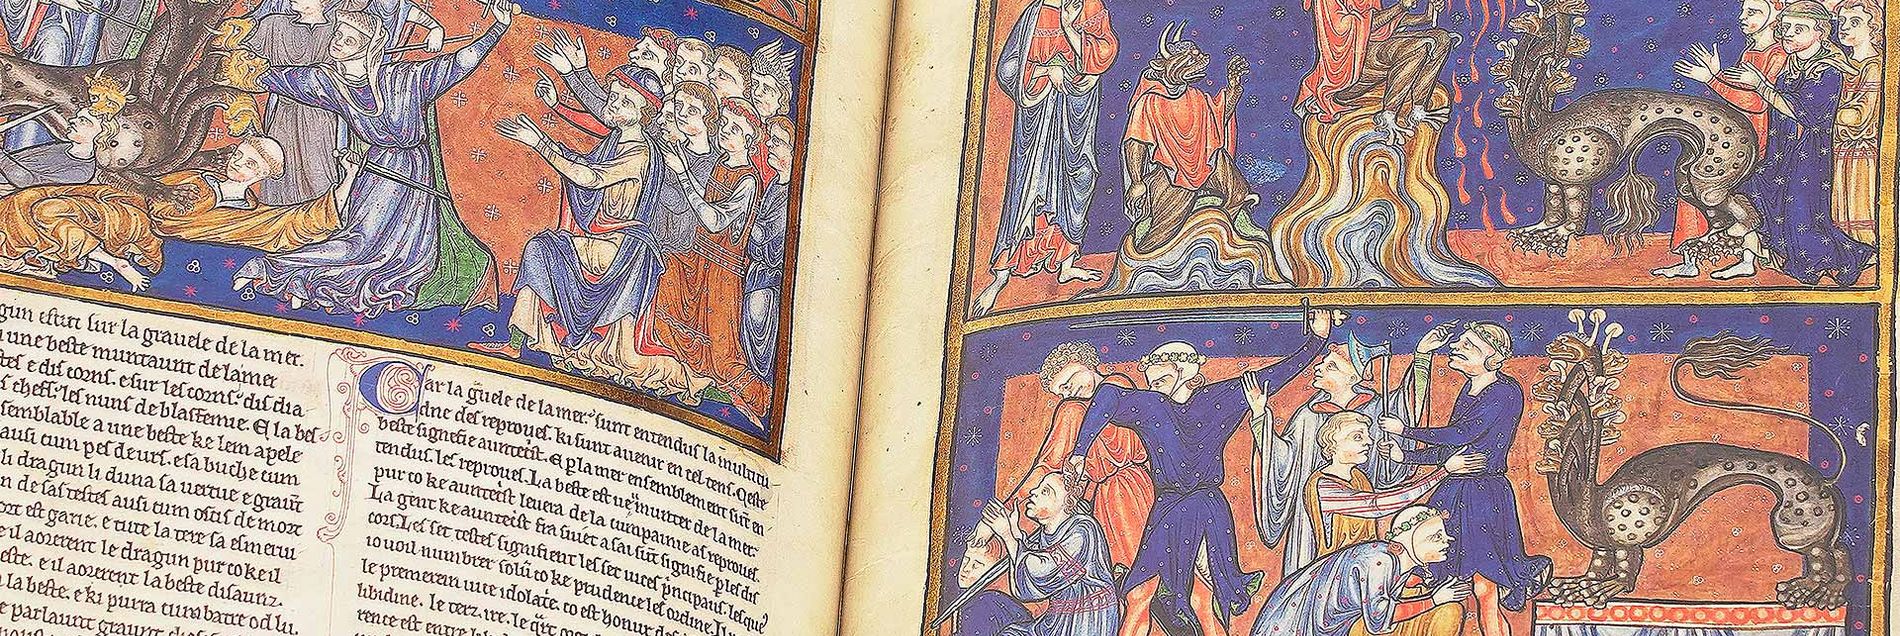 gun estut sur la gravele de la mer.
une beste muntaunt de la mer
e dis corns. e sur les corns: dis dia
chefs: les nuns de blasfemie. E la bes
semblable a une beste ke lem apele
ausi cum pes de urs. e sa buche cum
li dragun li duna sa vertue e graunt
n de sas testes ausi cum oscis de mort
ort est garie. e tute la tere sa esmerui
e il aorerent le dragun pur co ke il
este. e il aorerent la beste disaunz.
la beste. e ki purra cumbatre od lui.
e parlaunt graunt
Car la guele de la mer: sunt entendus la multitu
dne des reprouesl. ki sunt a uenir en cel tens. Ceste
beste signefie auntecrist. E p la mer ensemblement sunt en
tendus. les reprouesl. La beste est ueu munter de la mer:
pur co ke auntecrist leuera de la cumpainie as reprouesl.
La gent ke auntecrist fra siuet a sai sunt signifie p les dis
corns. Les set testes signifient les set uices principaus. les que
io uoil numbrer solum co ke prudence les ordine.
le premerein uice idolatrie. co est honur des
libidine. le terz. ire. le
rence est entre